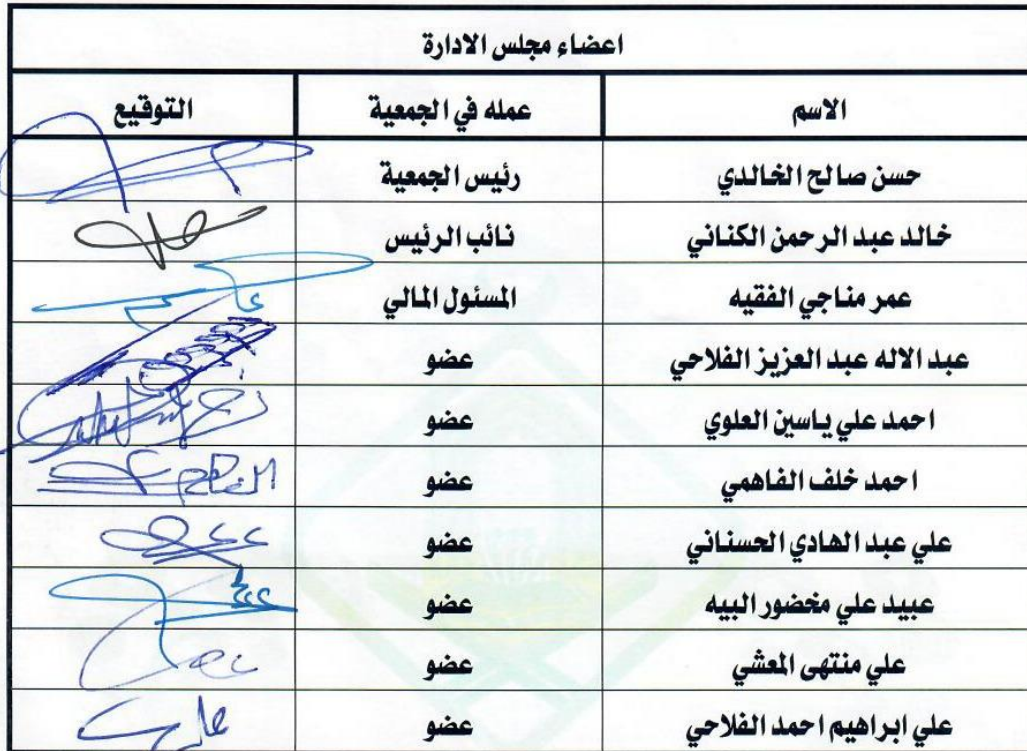 اعضاء مجلس الادارة
الاسم عمله في الجمعية التوقيع
حسن صالح الخالدي رئيس الجمعية
خالد عبد الرحمن الكناني نائب الرئيس
عمر مناجي الفقيه المسئول المالي
عبد الاله عبد العزيز الفلاحي عضو
احمد علي ياسين العلوي عضو
احمد خلف الفاهمي عضو
علي عبد الهادي الحسناني عضو
عبيد علي مخضور البيه عضو
علي منتهى المعشي عضو
علي ابراهيم احمد الفلاحي عضو